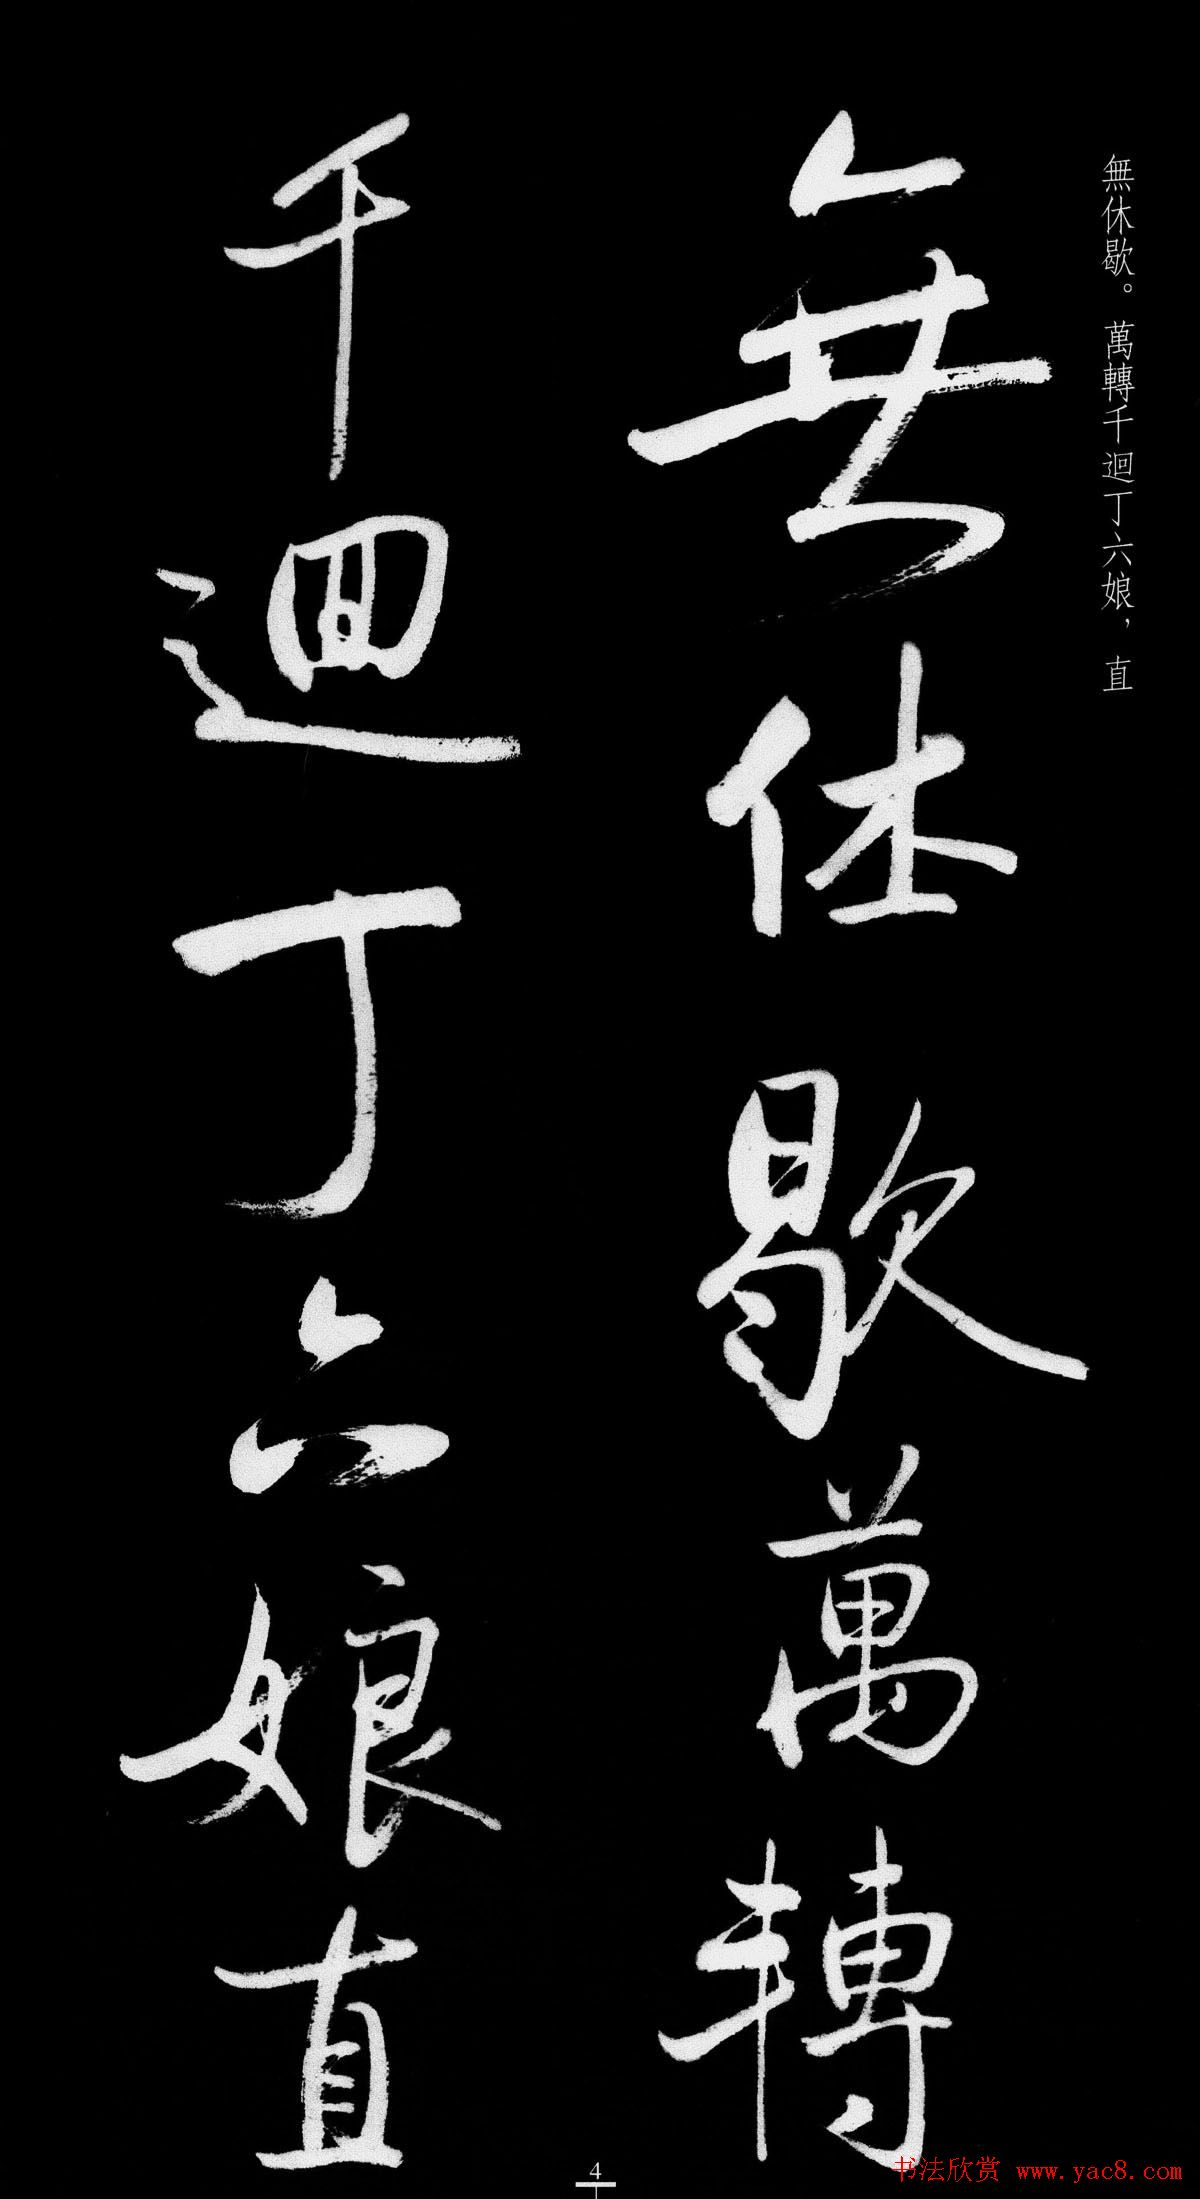 無休歇。萬轉千迴丁六娘，直
無休歇萬轉
千迴丁六娘直
4
书法欣赏 www.yac8.com